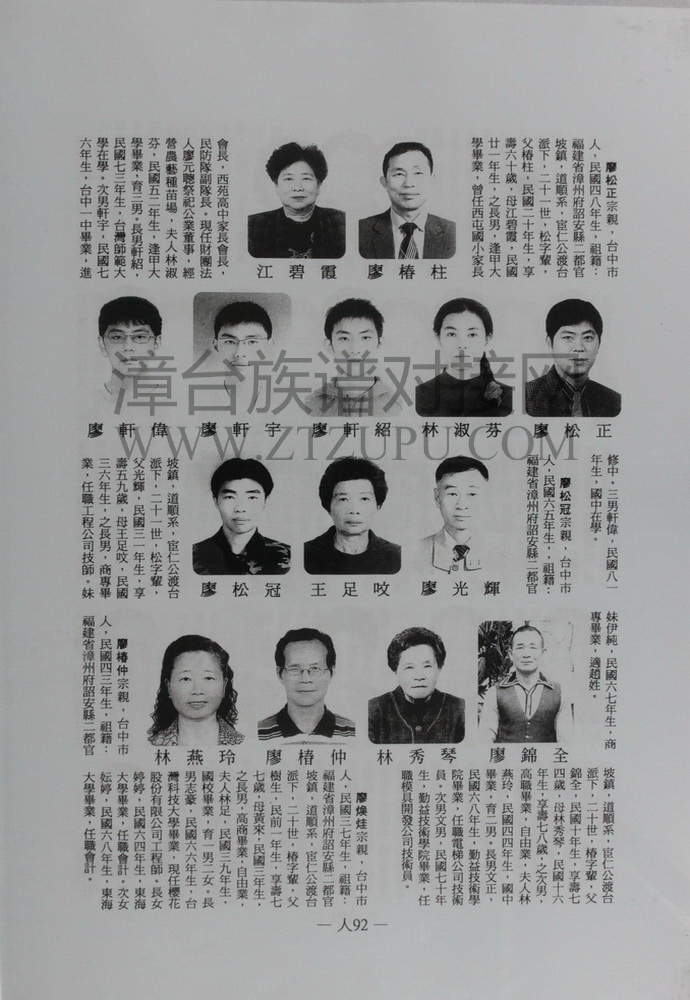 廖松正宗親，台中市
人，民國四八年生，祖籍：
福建省漳州府詔安縣二都官
坡鎮，道順系，宦仁公渡台
派下，二十一世，松字輩，
父椿柱，民國二十年生，享
壽六十歲，母江碧霞，民國
廿一年生，之長男，逢甲大
學畢業，曾任西屯國小家長
廖椿柱
江碧霞
會長，西苑高中家長會長，
民防隊副隊長。現任財團法
人廖元聰祭祀公業董事，經
營農藝種苗場，夫人林淑
芬，民國五二年生，逢甲大
學畢業，育三男。長男軒紹，
民國七三年生，台灣師範大
學在學。次男軒宇，民國七
六年生，台中一中畢業，進
廖松正
林淑芬
廖軒紹
廖軒宇
廖軒偉
漳台族谱对接网
WWW.ZTZUPU.COM
修中。三男軒偉，民國八一
年生，國中在學。
廖松冠宗親，台中市
人，民國六五年生，祖籍：
福建省漳州府詔安縣二都官
廖光輝
王足呅
廖松冠
坡鎮，道順系，宦仁公渡台
派下，二十一世，松字輩，
父光輝，民國三一年生，享
壽五九歲，母王足呅，民國
三六年生，之長男，商專畢
業，任職工程公司技師。妹
妹伊純，民國六七年生，商
專畢業，適趙姓。
廖錦全
林秀琴
廖椿仲
林燕玲
廖椿仲宗親，台中市
人，民國四三年生，祖籍：
福建省漳州府詔安縣二都官
坡鎮，道順系，宦仁公渡台
派下，二十世，椿字輩，父
錦全，民國十年生，享壽七
四歲，母林秀琴，民國十六
年生，享壽七八歲，之次男，
高職畢業，自由業，夫人林
燕玲，民國四四年生，國中
畢業，育二男。長男文正，
民國六八年生，勤益技術學
院畢業，任職電梯公司技術
員。次男文男，民國七十年
生，勤益技術學院畢業，任
職模具開發公司技術員。
廖煥烓宗親，台中市
人，民國三七年生，祖籍：
福建省漳州府詔安縣二都官
坡鎮，道順系，宦仁公渡台
派下，二十世，椿字輩，父
樹生，民前一年生，享壽七
七歲，母黃來，民國三年生，
之長男，高商畢業，自由業，
夫人林足，民國三九年生，
國校畢業，育一男二女。長
男志豪，民國六六年生，台
灣科技大學畢業，現任櫻花
股份有限公司工程師。長女
婷婷，民國六四年生，東海
大學畢業，任職會計。次女
妘婷，民國六八年生，東海
大學畢業，任職會計。
— 人92 —